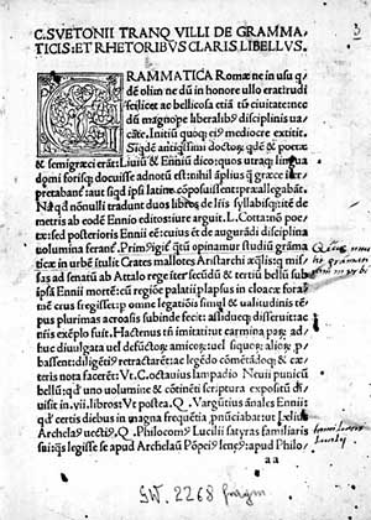 C. SVETONII TRANQ VILLI DE GRAMMA/
TICIS: ET RHETORIBVS CLARIS LIBELLVS.
3
GRAMMATICA Romæ ne in usu qͥ
dē olim ne dū in honore ullo erat: rudi
scilicet ac bellicosa etiā tū ciuitate: nec
dū magnope liberalibꝰ disciplinis ua
cāte. Initiū quoqꝫ eiꝰ mediocre extitit.
Siqͥdē ātiqͥssimi doctorꝝ qͥdē & poetæ
& semigræci erāt: Liuiū & Enniū dico: quos utraqꝫ lingua
domi forisqꝫ docuisse adnotū est: nihil āplius qͣ græce iter
pretabant: aut siqd ipsi latine cōposuissent: præallegabāt.
Nā qd nonulli tradunt duos libros de lris syllabisqꝫ: itē de
metris ab eodē Ennio editos: iure arguit. L. Cotta: nō poe/
tæ: sed posterioris Ennii eē: cuiꝰ & de augurādi disciplina
uolumina ferant. Primꝰ igiť qͣtū opinamur studiū grāma
ticæ in urbē ītulit Crates mallotes Aristarchi æqͣlis: qͥ mis/
sas ad senatū ab Attalo rege iter secūdū & tertiū bellū sub
ipsā Ennii mortē: cū regiōe palatii plapsus in cloacæ forā/
mē crus fregisset: p omne legatiōis simꝉ & ualitudinis tē/
pus plurimas acroasis subinde fecit: assidueqꝫ disseruit: ac
nr̄is exēplo fuit. Hactenus tn̄ imitati: ut carmina parꝝ ad/
huc diuulgata uel defūctorꝝ amicorꝝ: uel siquorꝝ aliorꝝ p
bassent: diligētiꝰ retractarēt: ac legēdo cōmētādoqꝫ & cæ/
teris nota facerēt: Vt. C. octauius lampadio Neuii punicū
bellū: qd uno uolumine & cōtinēti scriptura expositū di/
uisit in. vii. libros: Vt postea. Q. Vargūtius ānales Ennii:
qd certis diebus in magna frequētia pnūciabat: ut Lælius
Archelaꝰ uectiꝰ. Q. Philocomꝰ Lucilii satyras familiaris
sui: qͣs legisse se apud Archelaū Pōpeiꝰ leneꝰ: apud Philo/
aa
GW. 2268 fragm